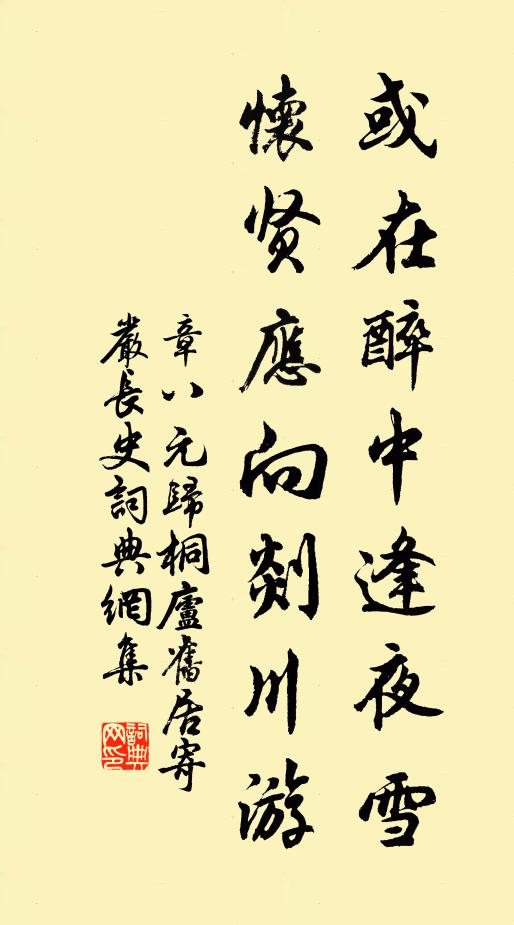 或在醉中逢夜雪
懷贤應向剡川游
章八元歸桐廬舊居寄
嚴長史詞典網集
詞典
网印